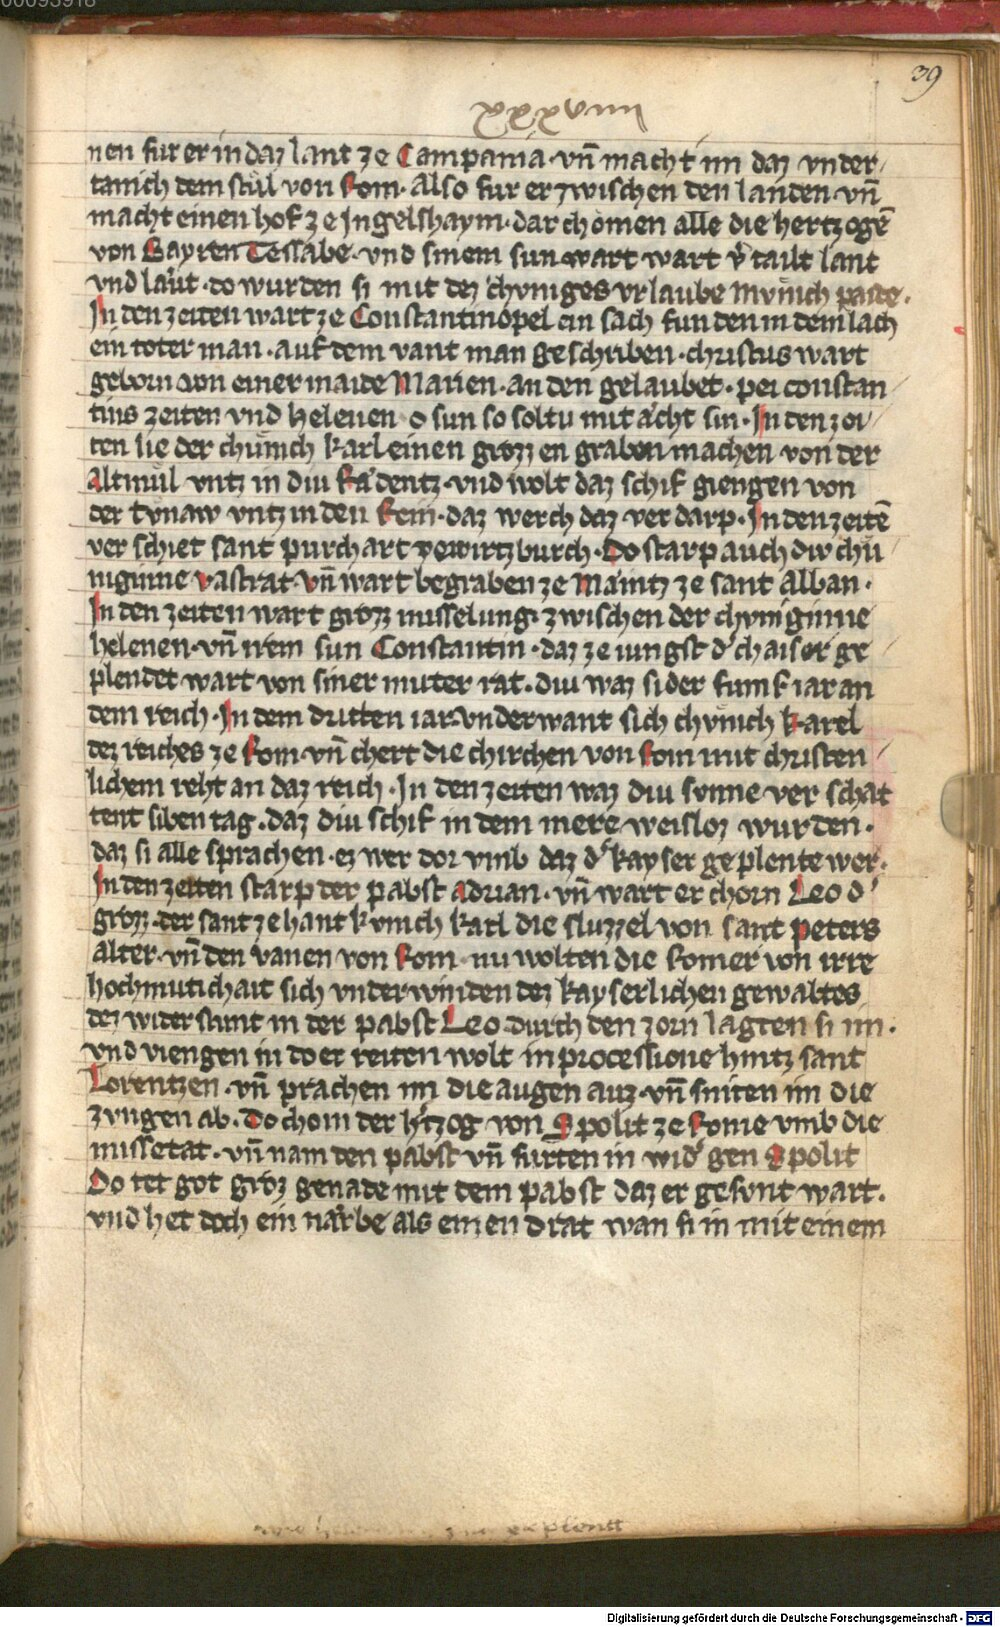 00093918
39
xxxviiii
nen fur er in daz lant ze Campania · vn̄ macht im daz vnder
tanich dem stůl von Rom · Also fur er zwischen den landen vn̄
macht einen hof ze Ingelshaym · dar chomen alle die hertzogē
von Bayren Tessabe · vnd sinem sun wart wart v̓tailt lant
vnd laůt · do wurden si mit dez chvniges vrlaube Mvnich paide ·
In den zeiten wart ze Constantinopel ein sach funden in dem lach
ein toter man · auf dem vant man geschriben · christus wart
geborn von einer maide Marien · an den gelaubet · pei constan
tins zeiten vnd helenen o sun so soltu mit ācht sin · In den zei
ten lie der chůnich karl einen grozzen graben machen von der
Altmůl vntz in diu Rādentz · vnd wolt daz schif giengen von
der tvnaw vntz in den Rein · daz werch daz verdarp · In den zeitē
verschiet sant purchart ze wirtzburch · Do starp auch div chů
niginne vastrat · vn̄ wart begraben ze Māintz ze sant Alban ·
In den zeiten wart grozz misselung zwischen der chvniginne
helenen · vn̄ irem sun Constantin · daz ze iungst d̓ chaiser ge
plendet wart von siner muter rat · diu waz sider fumf iar an
dem reich · In dem dritten iar vnderwant sich chvnich karel
dez reiches ze Rom · vn̄ chert die chirchen von Rom mit christen
lichem reht an daz reich · In den zeiten waz diu sonne verschat
tent siben tag · daz diu schif in dem mere weisloz wurden ·
daz si alle sprachen · ez wer dor vmb daz d̓ kayser geplente wer ·
In den zeiten starp der pabst adrian · vn̄ wart erchorn Leo d̓
grozz · der sant zehant kvnich karl die sluzzel von sant peters
alter · vn̄ den vanen von Rom · nu wolten die Romer von irre
hochmutichait sich vnderwinden dez kayserlichen gewaltes
dez widerstunt in der pabst Leo · durch den zorn lagten si im ·
vnd viengen in do er reiten wolt in processione hintz sant
Lorentzen · vn̄ prachen im die augen auz · vn̄ sniten im die
zvngen ab · Do chom der h̓tzog von Spolit ze Rome vmb die
missetat · vn̄ nam den pabst vn̄ furten in wid̓ gen Spolit
Do tet got groz genade mit dem pabst daz er gesvnt wart ·
vnd het doch ein narbe als einen drat wan si in mit einem
Digitalisierung gefördert durch die Deutsche Forschungsgemeinschaft · DFG